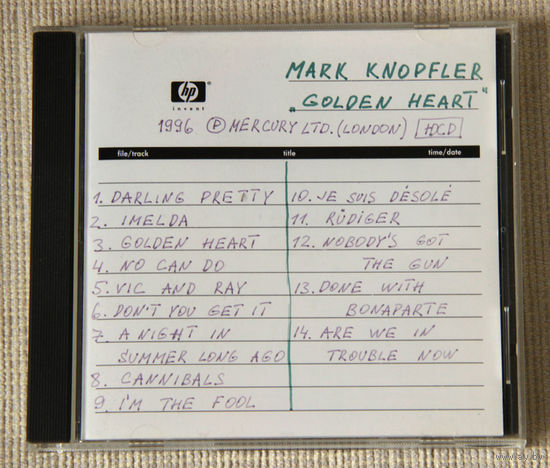 hp
invent
MARK KNOPFLER
„GOLDEN HEART"
1996 Ⓟ MERCURY LTD. (LONDON) HDCD
file/track title time/date
1. DARLING PRETTY
2. IMELDA
3. GOLDEN HEART
4. NO CAN DO
5. VIC AND RAY
6. DON'T YOU GET IT
7. A NIGHT IN
SUMMER LONG AGO
8. CANNIBALS
9. I'M THE FOOL
10. JE SUIS DÉSOLÉ
11. RÜDIGER
12. NOBODY'S GOT
THE GUN
13. DONE WITH
BONAPARTE
14. ARE WE IN
TROUBLE NOW